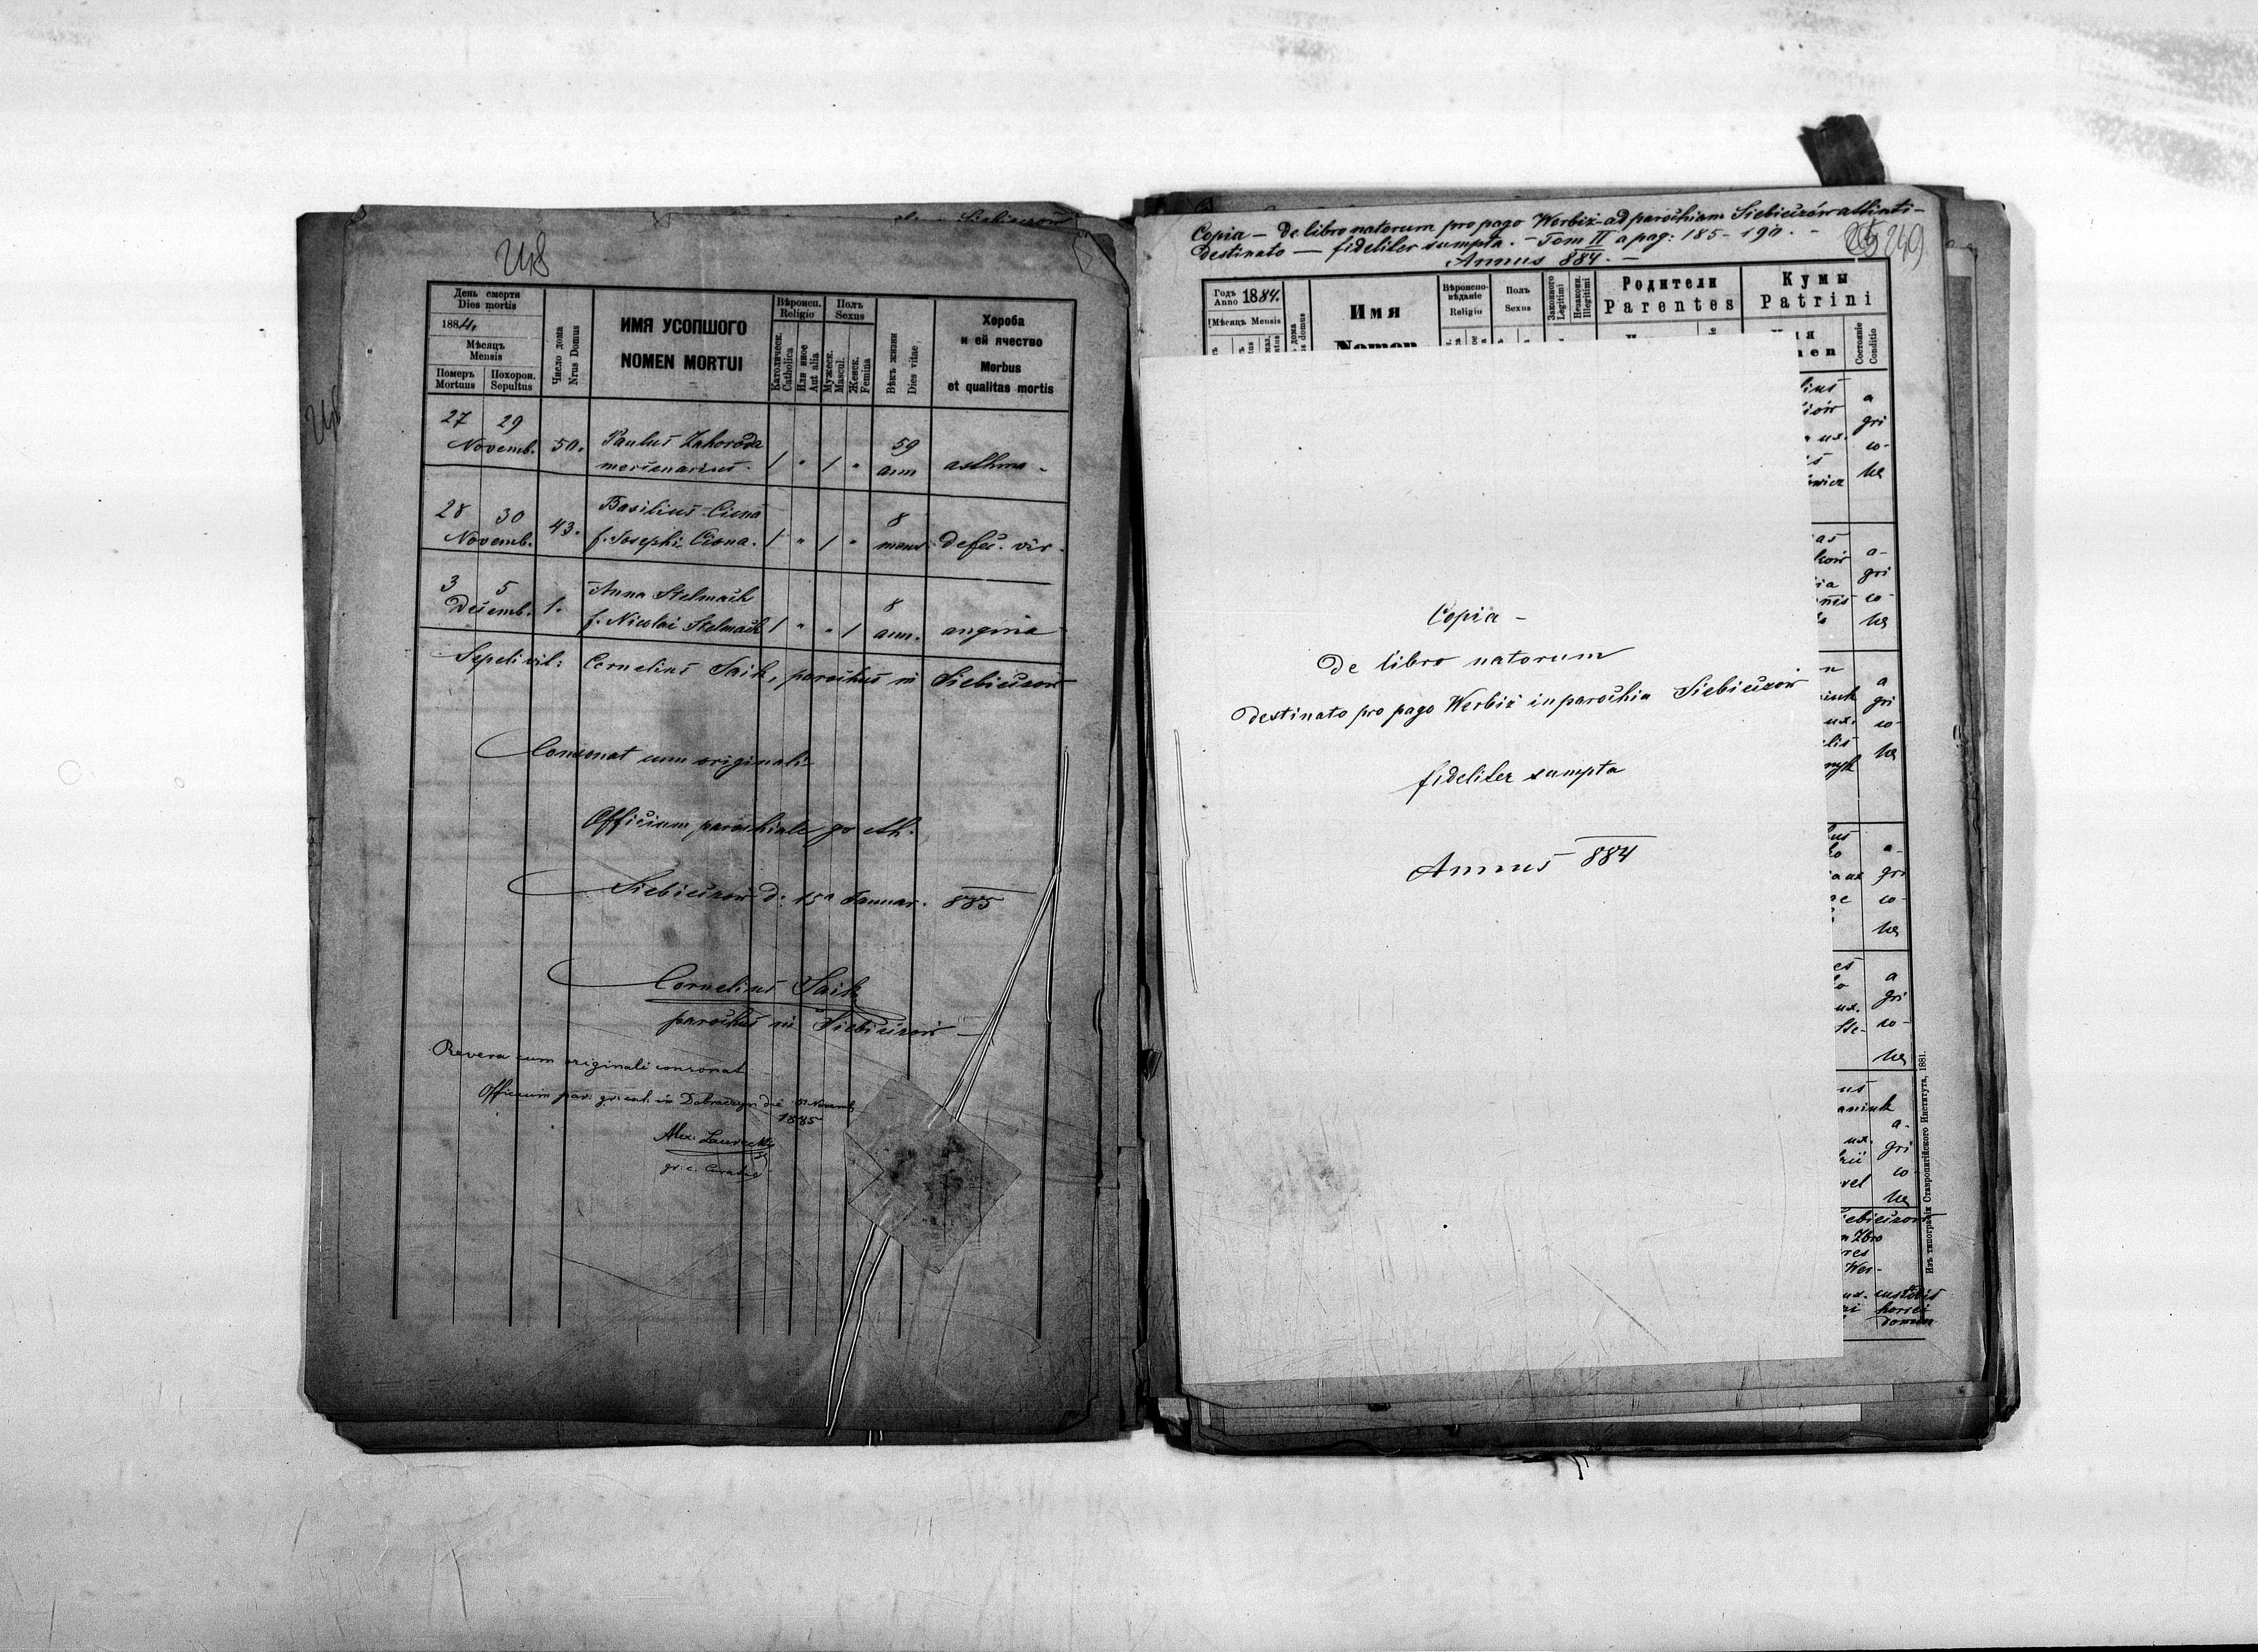 248
День смерти
Dies mortis
1884.
Мѣсяцъ
Mensis
Померъ
Mortuus
Похорон.
Sepultus
Число дома
Nrus Domus
ИМЯ УСОПШОГО
NOMEN MORTUI
Вѣроисп.
Religio
Католическ.
Catholica
Или иное
Aut alia
Полъ
Sexus
Мужеск.
Mascul.
Женск.
Femina
Вѣкъ жизни
Dies vitae
Хороба
и ей ячество
Morbus
et qualitas mortis
27 29
Novemb. 50. Paulus Zahoroda 59
mercenarius. / " / " ann asthma -
28 30 Basilius Ciona 8
Novemb. 43. f. Josephi Ciona. / " / " mens defec. vir.
3 5 Anna Stelmach 8
Decemb. 1. f. Nicolai Stelmach / " " / ann. angina
Sepelivit: Cornelius Saik, parochus in Siebieczow
Consonat cum originali
Officium parochiale gr cth.
Siebieczow d: 15a Januar. 885
Cornelius Saik
parochus in Siebieczow
Revera cum originali consonat
Officium par: gr. cat. in Dobraczyn die Novemb
1885
Alex. Lawrecki
gr. c.
Copia - De libro natorum pro pago Werbiz ad parochiam Siebieczów attinti-
destinato - fideliter sumpta. - Tom II a pag: 185-190. -
Annus 884. -
249
Годъ
Anno 1884.
Мѣсяцъ Mensis
Имя
Nomen
Вѣроиспо-
вѣданіе
Religio
Полъ
Sexus
Законного
Legitimi
Незаконн.
Illegitimi
Родители
Parentes
Кумы
Patrini
Состояніе
Conditio
Copia -
De libro natorum
destinato pro pago Werbiz in parochia Siebieczow
fideliter sumpta
Annus 884
a
gri
co-
lae
a-
gri
co-
lae
a
gri
co-
lae
a-
gri
co-
lae
a
gri
co-
lae
a-
gri
co-
lae
custodis
horrei
Изъ типографіи Ставропигійского Института, 1881.